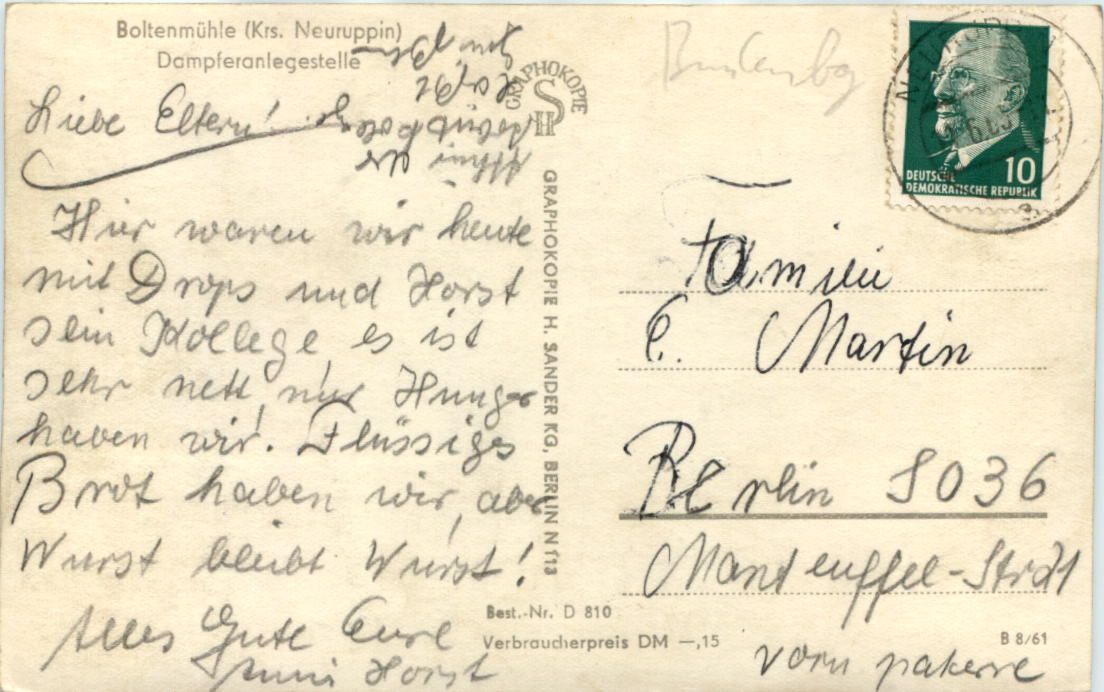 Boltenmühle (Krs. Neuruppin)
Dampferanlegestelle
Liebe Eltern!
Hier waren wir heute
mit Drops und Horst
sein Kollege, es ist
sehr nett, nur Hunger
haben wir. Flüssiges
Brot haben wir, aber
Wurst bleibt Wurst!
Alles Gute Eure
Anni Horst
GRAPHOKOPIE
H S
GRAPHOKOPIE H. SANDER KG, BERLIN N 113
Best.-Nr. D 810
Verbraucherpreis DM —,15
DEUTSCHE
DEMOKRATISCHE REPUBLIK
10
NEURUPPIN
Familie
E. Martin
Berlin SO 36
Manteuffel-Strat
vorn pakerre
B 8/61